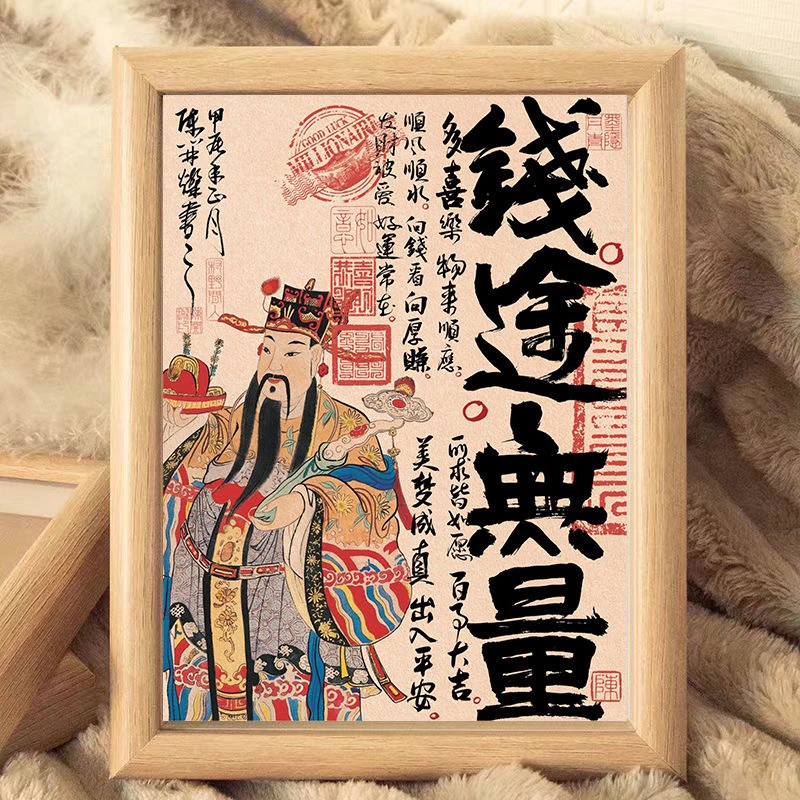 錢途無量
多喜樂 物来順應。
順风順水。向錢看向厚賺。
发財被爱 好運常在。
所求皆如愿 百事大吉。
美梦成真 出入平安。
甲辰年正月
GOOD LUCK
MILLIONAIRE
陳